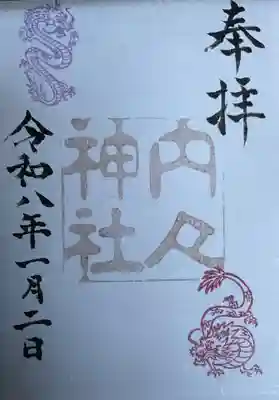 奉拝
内々
神社
令和八年一月二日